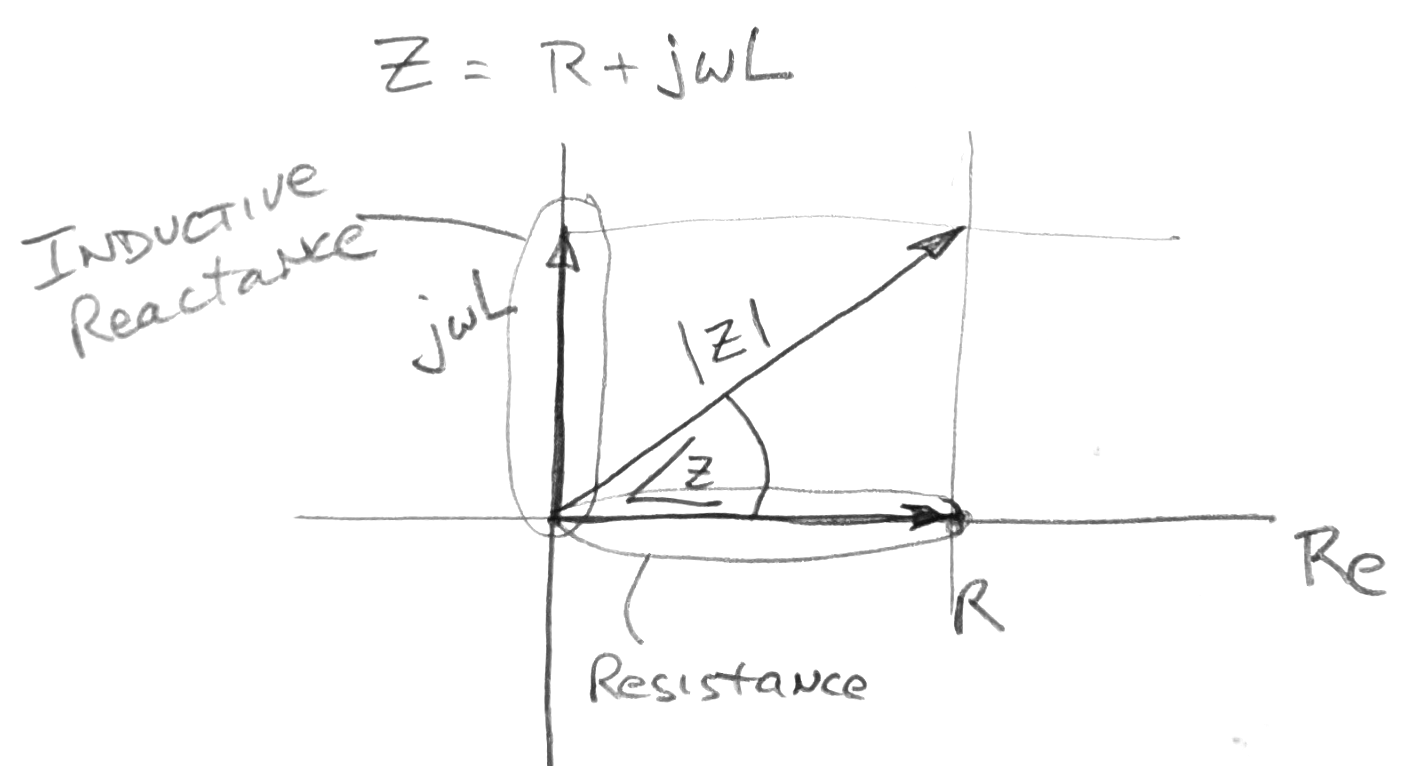 Z = R + jωL
INDUCTIVE
Reactance
jωL
|Z|
∠Z
Re
R
Resistance